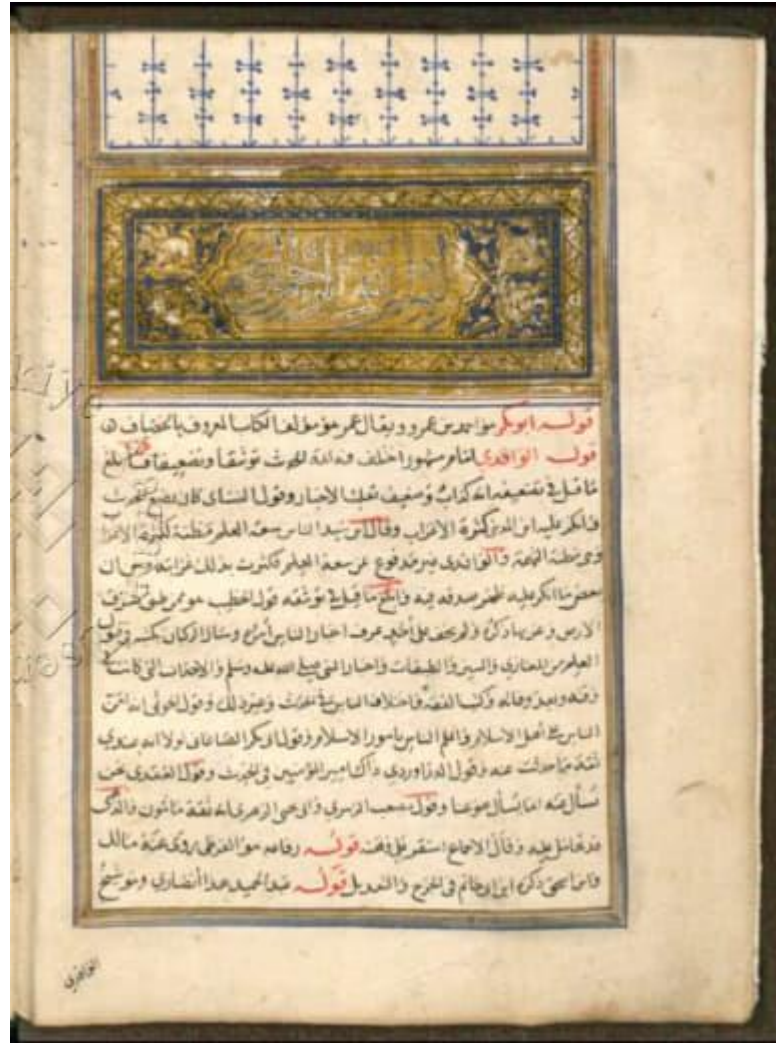 قوله ابوبكر هو احمد بن عمرو ويقال عمر هو مؤلف الكتاب المعروف بالخصاف
قوله الواقدي امام مشهور اختلف فيه ائمة الحديث توثيقا وتضعيفا بلغ
ما قيل في تضعيفه انه كذاب وضعيف وقول النسائي كان يضع الحديث
فانكر عليه ابن المديني كثرة الاغراب وقال ابن سيد الناس سعة العلم مظنة لكثرة الاغراب
وهي مظنة التهمة والواقدي غير مدفوع عن سعة العلم فكثرت بذلك غرائبه
بعض ما انكر عليه ظهر صدقه فيه وابلغ ما قيل في توثيقه قول الخطيب هو ممن طبق شرق
الارض وغربها ذكره ولم يخف على احد عرف اخبار الناس امره وسار الركبان بكتبه في فنون
العلم من المغازي والسير والطبقات واخبار النبي صلى الله عليه وسلم والاحداث التي كانت في
وقته وبعد وفاته وكتب الفقه واختلاف الناس في الحديث وغير ذلك وقول انه امن
الناس على اهل الاسلام واعلم الناس بامور الاسلام وقول ابي بكر الصاغاني لولا انه عندي
ثقة ما حدثت عنه وقول الدراوردي ذاك امير المؤمنين في الحديث وقول
نسأل عنه انما يسأل هو عنا وقول مصعب الزبيري وابي يحيى الزهري انه ثقة مأمون
قد تحامل عليه وقال الاجماع استقر على وهنه قوله رفاعة هو القرظي روى عنه مالك
وابن اسحق ذكره ابن ابي حاتم في الجرح والتعديل قوله عبد الحميد هذا انصاري وهو شيخ
الواقدي